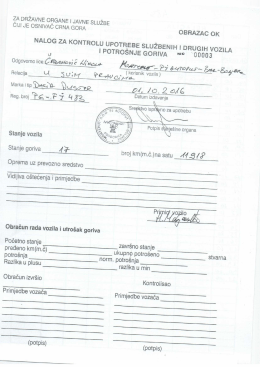 ZA DRŽAVNE ORGANE I JAVNE SLUŽBE
ČIJI JE OSNIVAČ CRNA GORA
OBRAZAC OK
NALOG ZA KONTROLU UPOTREBE SLUŽBENIH I DRUGIH VOZILA
I POTROŠNJE GORIVA 00003
Odgovorno lice
Relacija U SVIM
Marka i tip DACIA DUSTER
Reg. broj
01.10.2016
Datum izdavanja
Potpis ovlašćene organe
Stanje vozila
Stanje goriva 17 broj km(m.č.)na satu 11918
Opreme uz prevozno sredstvo
Vidljiva oštećenja i primjedbe
Primio vozilo
Obračun rada vozila i utrošak goriva
Početno stanje završno stanje
pređeno km(m.č) ukupno potrošeno stvarna
potrošnja norm. potrošnja
Razlika u plusu razlika u min
Obračun izvršio
Kontrolisao
Primjedbe vozača Primjedbe vozača
(potpis) (potpis)